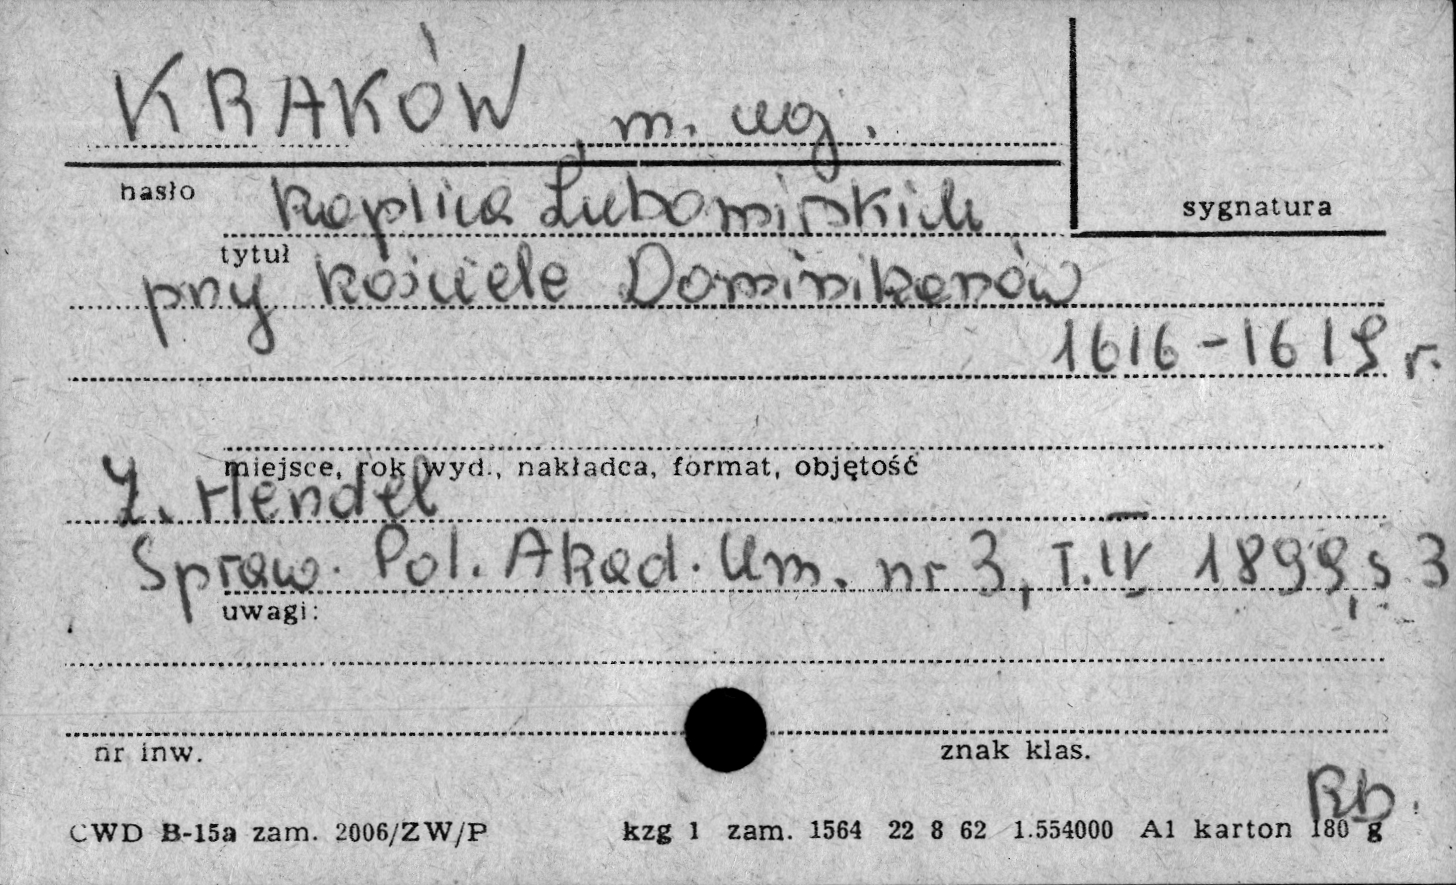 KRAKÓW, m. woj.
hasło
sygnatura
kaplica Lubomirskich
tytuł
przy kościele Dominikanów
1616-1619 r.
miejsce, rok wyd., nakładca, format, objętość
Z. Hendel
Spraw. Pol. Akad. Um. nr 3, T. IV 1899, s 3
uwagi:
nr inw.
znak klas.
Rb.
CWD B-15a zam. 2006/ZW/P kzg 1 zam. 1564 22 8 62 1.554000 A1 karton 180 g